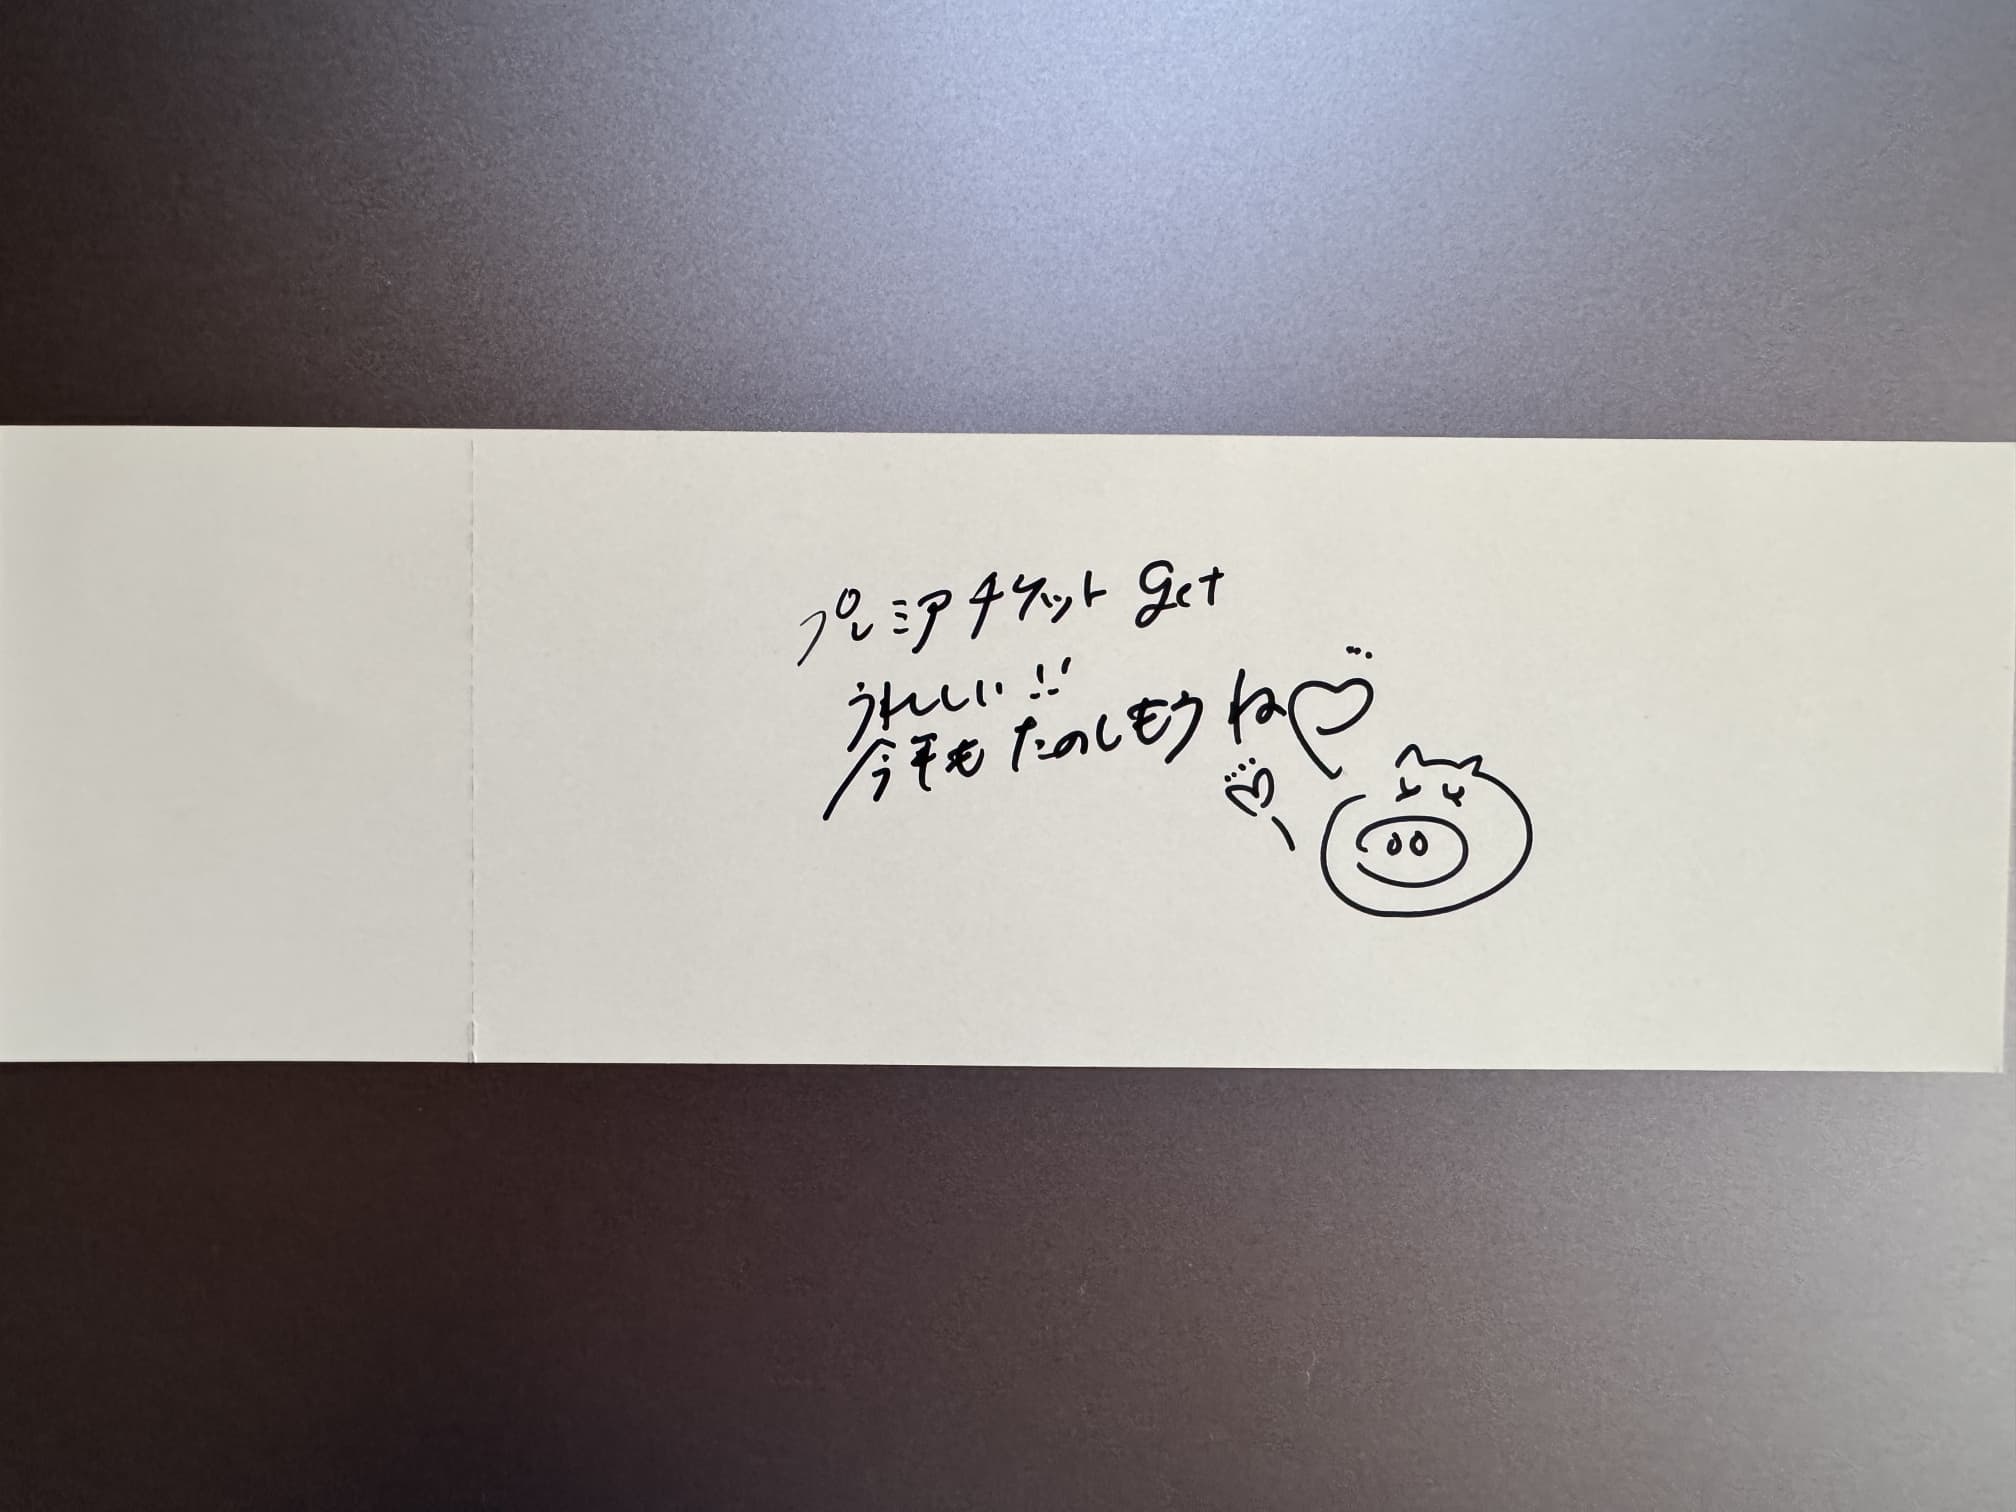 プレミアチケット get
うれしい!!
今年もたのしもうね♡